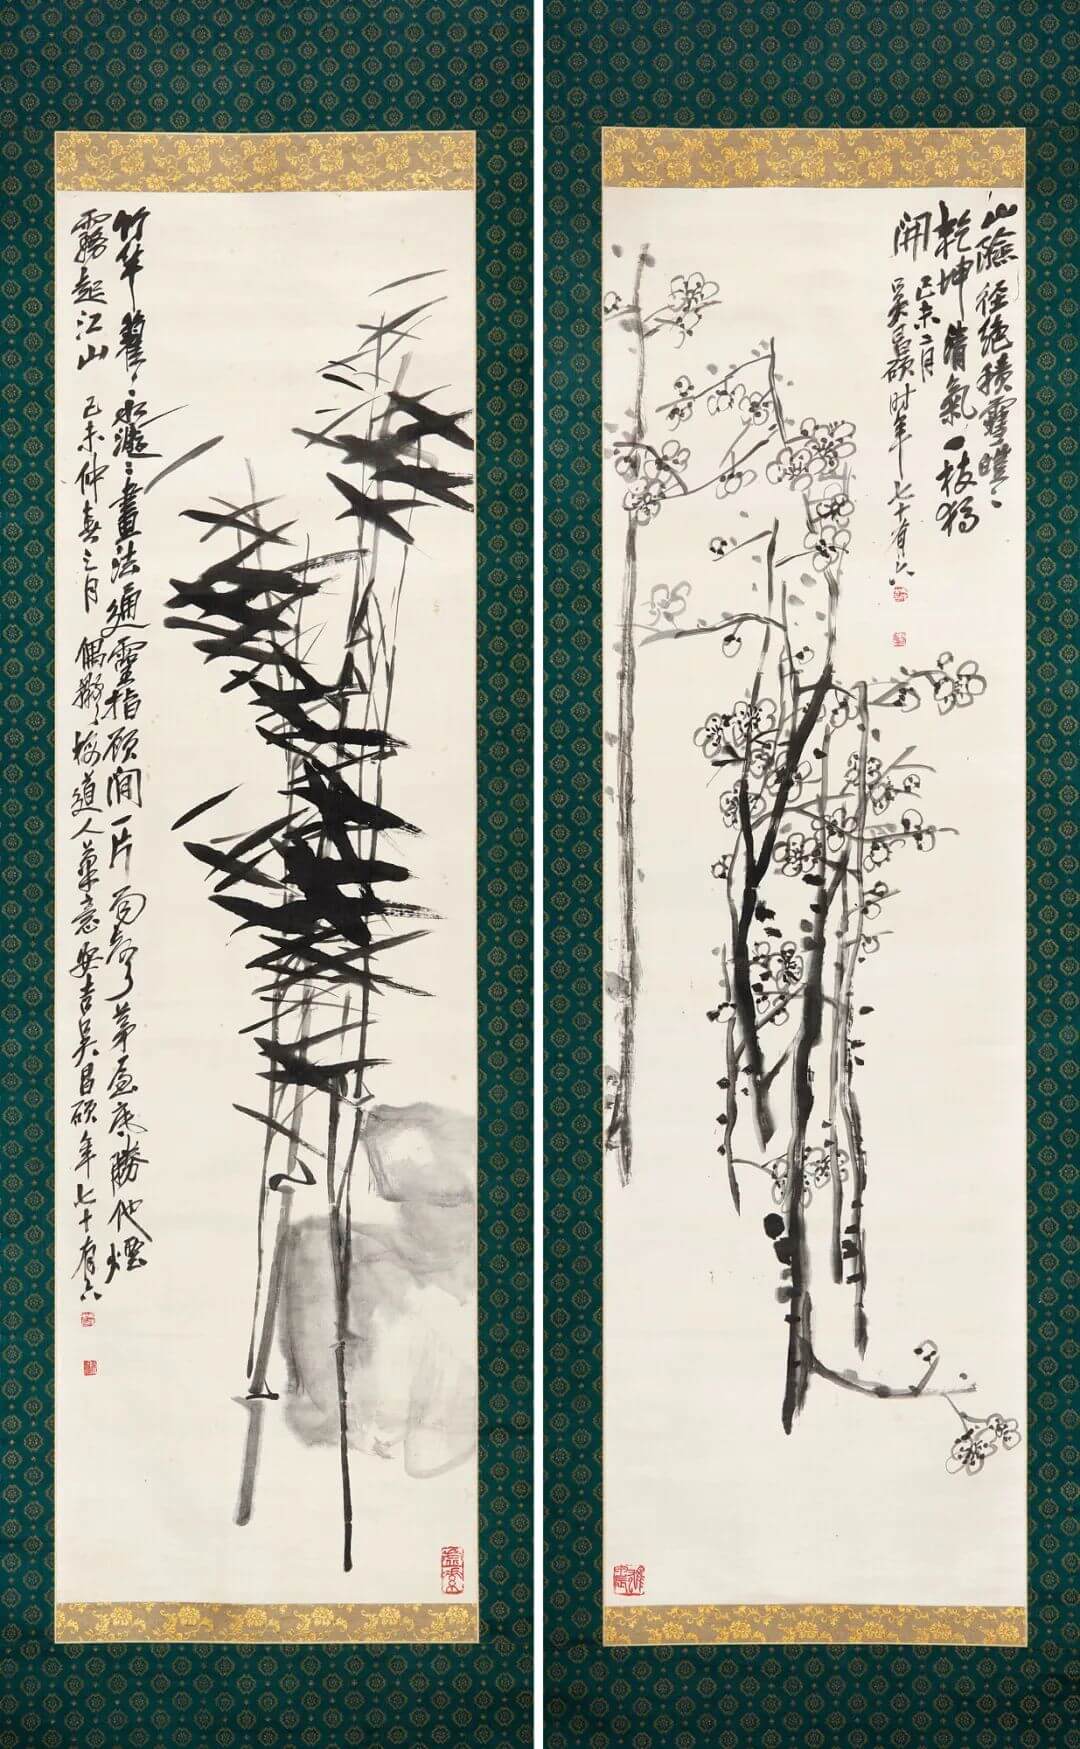 山險徑絕積雪皚〻
乾坤清氣一枝獨
開
己未二月
吳昌碩時年七十有六
竹竿籊〻水潺〻畫法通靈指顧間一片商聲茅屋底勝他煙
霧起江山 己未仲春之月偶擬梅道人筆意安吉吳昌碩年七十有六